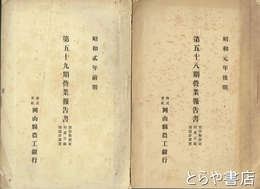 昭和元年後期
第五十八期營業報告書
株式會社 岡山縣農工銀行
昭和貳年前期
第五十九期營業報告書
株式會社 岡山縣農工銀行
とらや書房